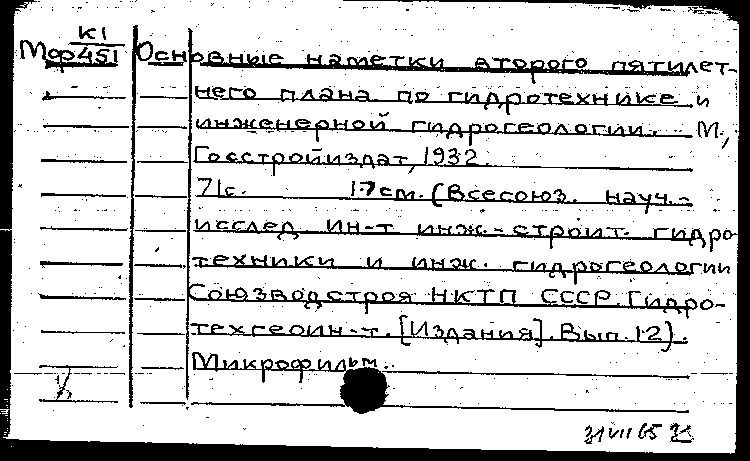 К1
Мф451 Основные наметки второго пятилет-
него плана по гидротехнике и
инженерной гидрогеологии. М.,
Госстройиздат, 1932.
71с. 17см. (Всесоюз. науч.-
исслед. ин-т инж.-строит. гидро-
техники и инж. гидрогеологии
Союзводстроя НКТП СССР. Гидро-
техгеоин-т. [Издания]. Вып. 12).
Микрофильм.
31 VII 65